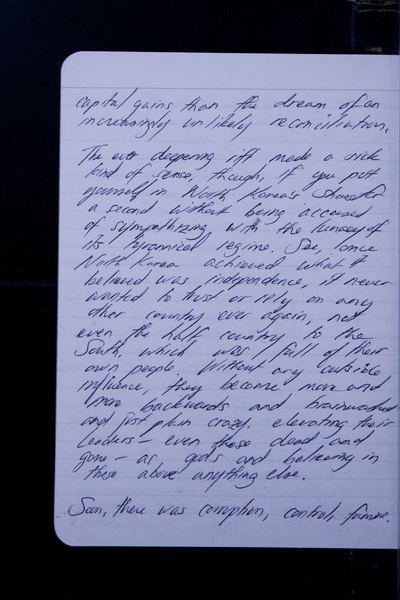 capital gains, than the dream of an
increasingly unlikely reconciliation.
The ever deepening rift made a sick
kind of sense, though, if you put
yourself in North Korea's shoes for
a second without being accused
of sympathizing with the lunacy of
its tyrannical regime. See, once
North Korea achieved what it
believed was independence, it never
wanted to trust or rely on any
other country ever again, not
even the half country to the
South, which was full of their
own people. Without any outside
influence, they became more and
more backwards and brainwashed
and just plain crazy. elevating their
leaders — even those dead and
gone — as gods and believing in
them above anything else.
Soon, there was corruption, control, famine.